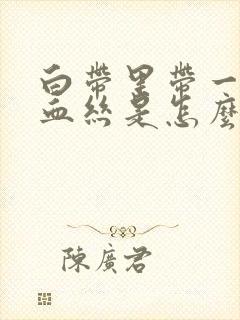 白帶里帶一
血絲是怎麼
陳廣君